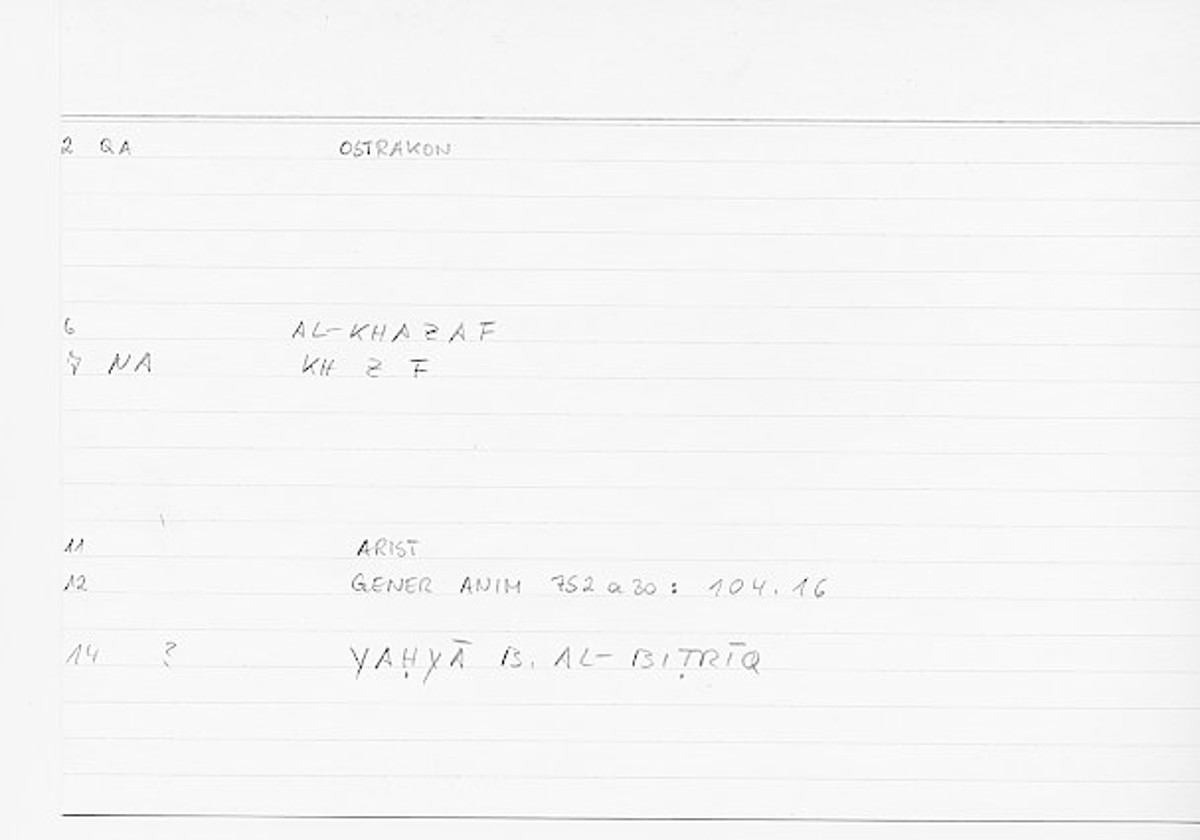 2 QA OSTRAKON
6 AL-KHAZAF
7 NA KH Z F
11 ARIST
12 GENER ANIM 752 a 30 : 104.16
14 ? YAḤYĀ B. AL-BIṬRĪQ